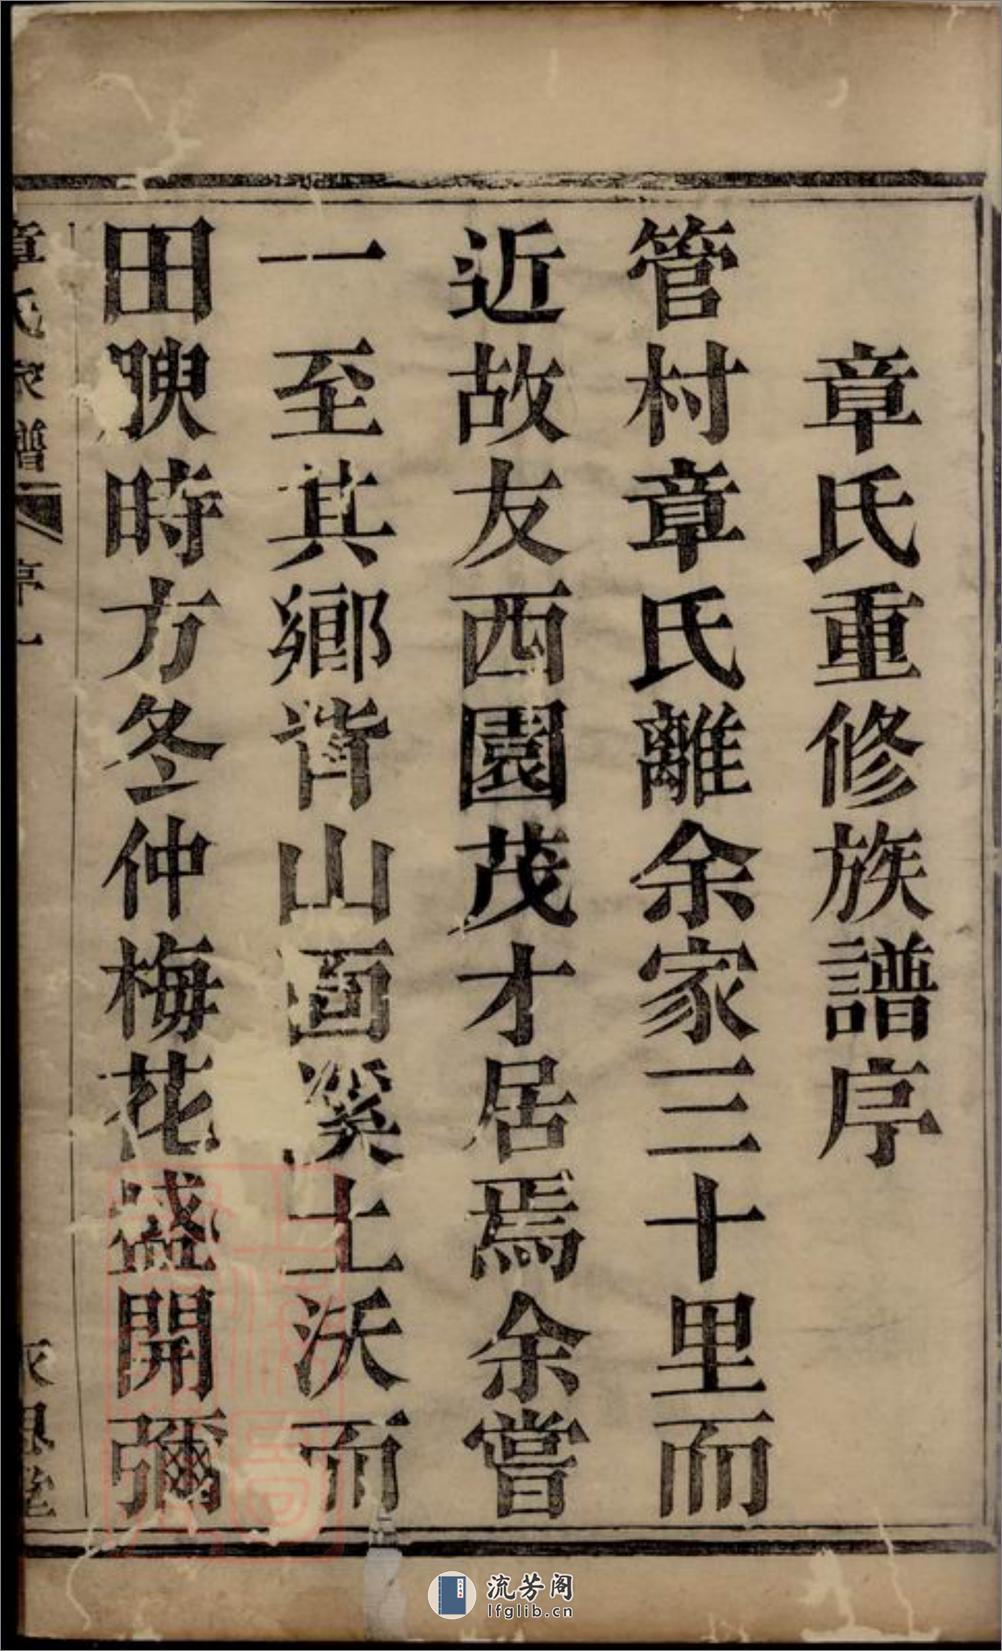 章氏重修族譜序
管村章氏離余家三十里而
近故友西園茂才居焉余嘗
一至其鄉背山面溪土沃而
田腴時方冬仲梅花盛開彌
章氏家譜
序一
思堂
流芳阁
lfglib.cn